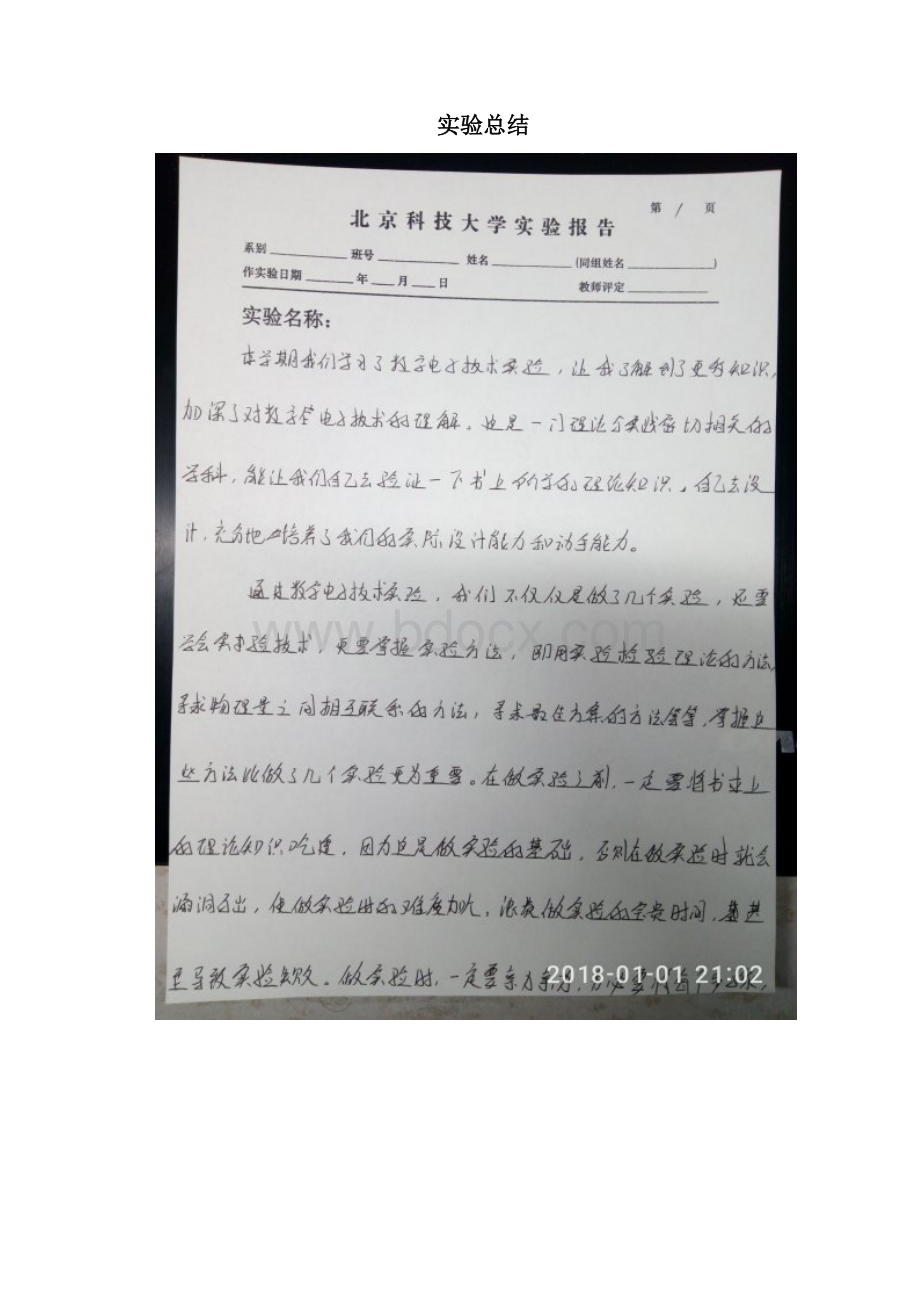 实验总结
第 1 页
北京科技大学实验报告
系别 班号 姓名 (同组姓名 )
作实验日期 年 月 日 教师评定
实验名称:
本学期我们学习了数字电子技术实验,让我了解到了更多知识,
加深了对数字电子技术的理解。这是一门理论与实践密切相关的
学科,能让我们自己去验证一下书上所学的理论知识,自己去设
计,充分地培养了我们的实际设计能力和动手能力。
通过数字电子技术实验,我们不仅仅是做了几个实验,还要
学会实验技术,更要掌握实验方法,即用实验检验理论的方法,
寻求物理量之间相互联系的方法,寻求最佳方案的方法等等,掌握这
些方法比做了几个实验更为重要。在做实验之前,一定要将书本上
的理论知识吃透,因为这是做实验的基础,否则在做实验时就会
漏洞百出,使做实验时的难度加大,浪费做实验的宝贵时间,甚
至导致实验失败。做实验时,一定要亲力亲为,务必要
www.bdocx.com
2018-01-01 21:02